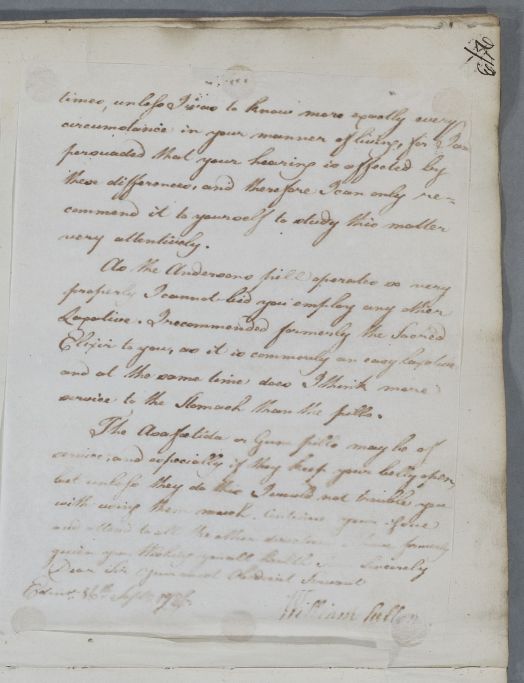 times, unless I was to know more exactly every
circumstance in your manner of living, for I am
persuaded that your hearing is affected by
these differences, and therefore I can only re=
commend it to yourself to study this matter
very attentively.
As the Andersons pill operates so very
properly I cannot bid you employ any other
Laxative. I recommended formerly the Sacred
Elixir to you, as it is commonly an easy laxative
and at the same time does I think more
service to the Stomach than the pills.
The Asafoetida or Gum pills may be of
service, and especially if they keep your belly open,
but unless they do this I would not trouble you
with using them much. Continue your
and attend to all the other formerly
given you wishing you all health Sincerely
Dear Sir your most Obedient Servant
Edinr. 16th Septr.
William Cullen